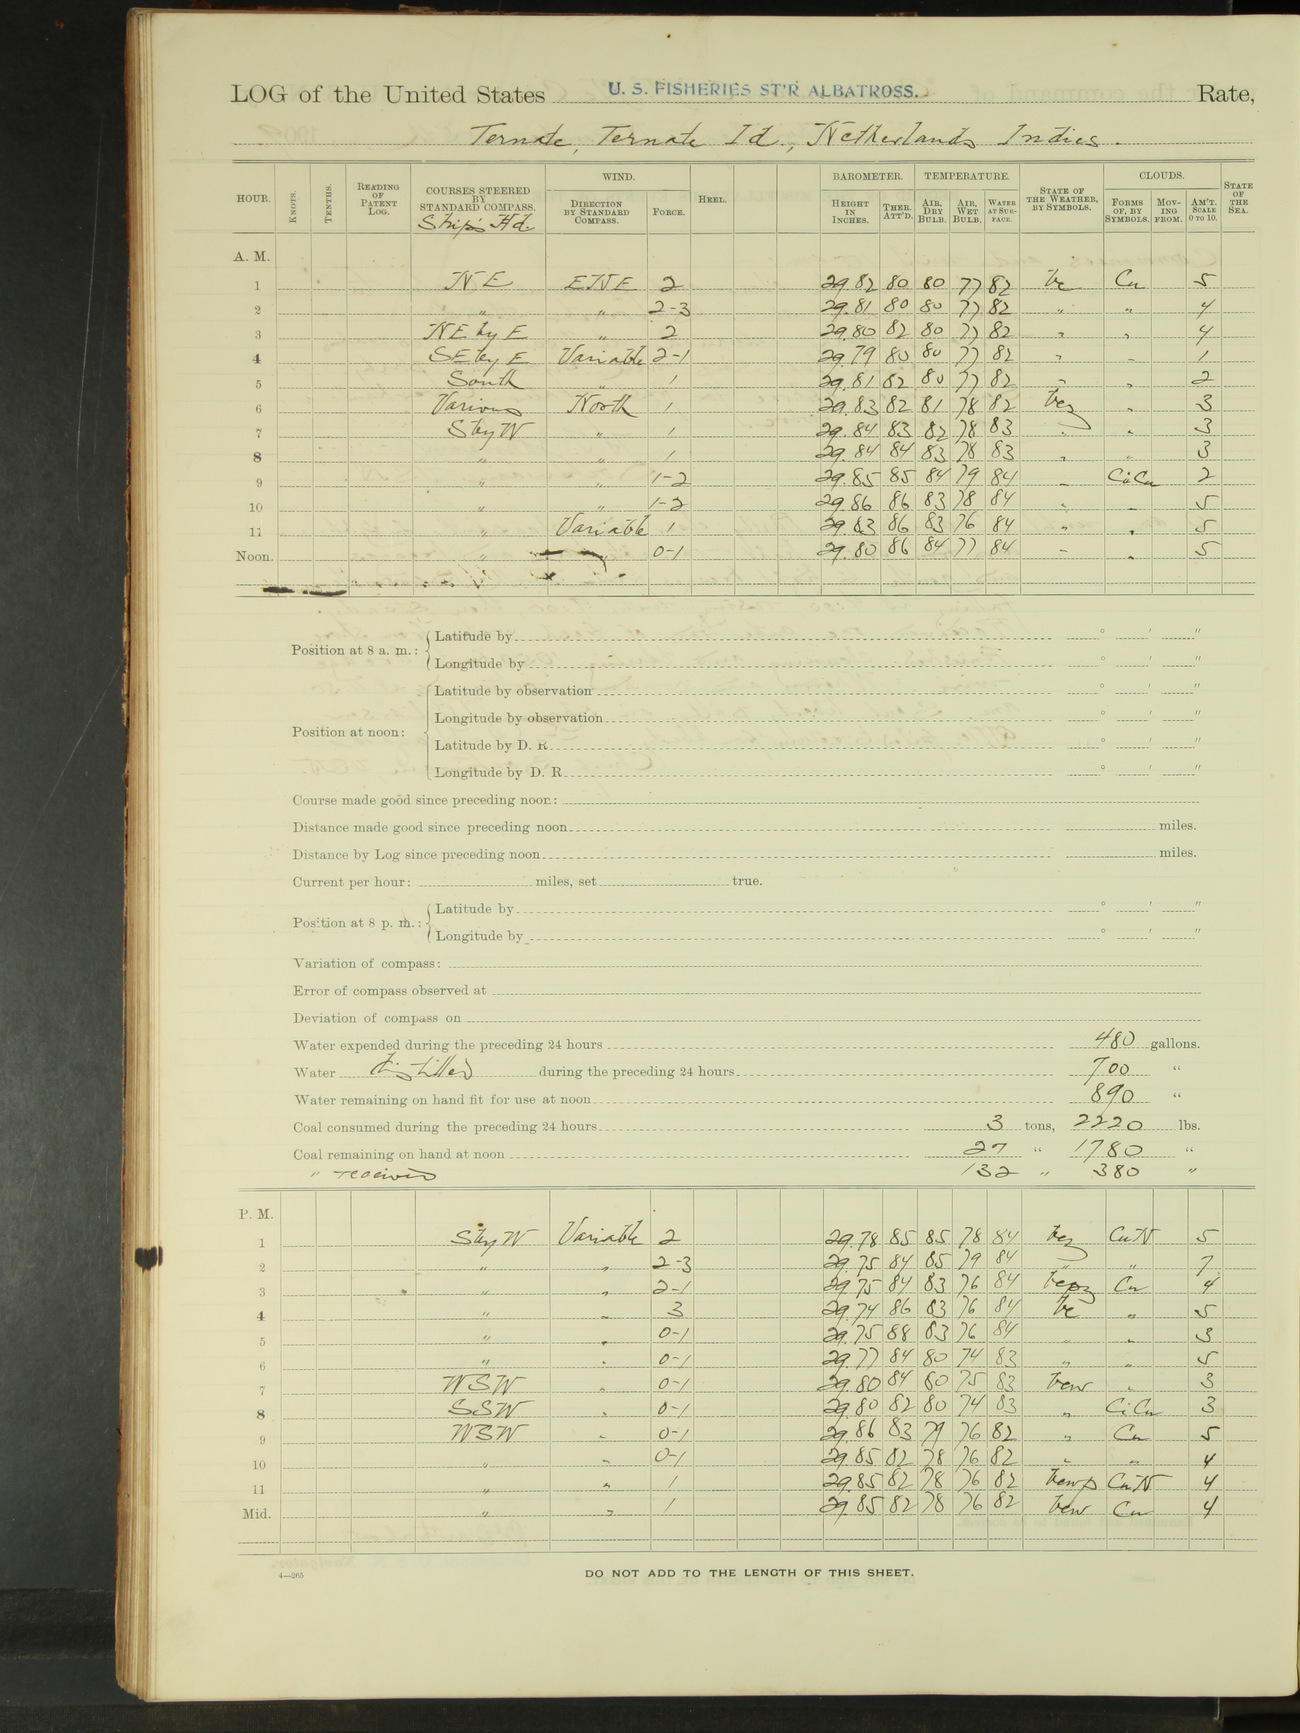 LOG of the United States U. S. FISHERIES ST'R ALBATROSS. Rate,
Ternate, Ternate Id., Netherlands Indies.
HOUR. KNOTS. TENTHS. READING OF PATENT LOG. COURSES STEERED BY STANDARD COMPASS. Ship's Hd. WIND. DIRECTION BY STANDARD COMPASS. FORCE. HEEL. BAROMETER. HEIGHT IN INCHES. THER. ATT'D. TEMPERATURE. AIR, DRY BULB. AIR, WET BULB. WATER AT SURFACE. STATE OF THE WEATHER, BY SYMBOLS. CLOUDS. FORMS OF, BY SYMBOLS. MOVING FROM. AM'T. SCALE 0 TO 10. STATE OF THE SEA.
A. M.
1 NE ENE 2 29.82 80 80 77 82 bc Cu 5
2 " " 2-3 29.81 80 80 77 82 " " 4
3 NE by E " 2 29.80 82 80 77 82 " " 4
4 SE by E Variable 2-1 29.79 80 80 77 82 " " 1
5 South " 1 29.81 82 80 77 82 " " 2
6 Various North 1 29.83 82 81 78 82 bcz " 3
7 S by W " 1 29.84 83 82 78 83 " " 3
8 " " 1 29.84 84 83 78 83 " " 3
9 " " 1-2 29.85 85 84 79 84 " CiCu 2
10 " " 1-2 29.86 86 83 78 84 " " 5
11 " Variable 1 29.83 86 83 76 84 " " 5
Noon. " " 0-1 29.80 86 84 77 84 " " 5
Position at 8 a. m.: Latitude by ° ' "
Longitude by ° ' "
Position at noon: Latitude by observation ° ' "
Longitude by observation ° ' "
Latitude by D. R. ° ' "
Longitude by D. R. ° ' "
Course made good since preceding noon:
Distance made good since preceding noon miles.
Distance by Log since preceding noon miles.
Current per hour: miles, set true.
Position at 8 p. m.: Latitude by ° ' "
Longitude by ° ' "
Variation of compass:
Error of compass observed at
Deviation of compass on
Water expended during the preceding 24 hours 480 gallons.
Water distilled during the preceding 24 hours 700 "
Water remaining on hand fit for use at noon 890 "
Coal consumed during the preceding 24 hours 3 tons, 2220 lbs.
Coal remaining on hand at noon 27 " 1780 "
" received 132 " 380 "
P. M.
1 S by W Variable 2 29.78 85 85 78 84 bcz CuN 5
2 " " 2-3 29.75 84 85 79 84 " " 7
3 " " 2-1 29.75 84 83 76 84 bcpz Cu 4
4 " " 3 29.74 86 83 76 84 bc " 5
5 " " 0-1 29.75 88 83 76 84 " " 3
6 " " 0-1 29.77 84 80 74 83 " " 5
7 WSW " 0-1 29.80 84 80 75 83 bcw " 3
8 SSW " 0-1 29.80 82 80 74 83 " CiCu 3
9 WSW " 0-1 29.86 83 79 76 82 " Cu 5
10 " " 0-1 29.85 82 78 76 82 " " 4
11 " " 1 29.85 82 78 76 82 bcwp CuN 4
Mid. " " 1 29.85 82 78 76 82 bcw Cu 4
4—265
DO NOT ADD TO THE LENGTH OF THIS SHEET.